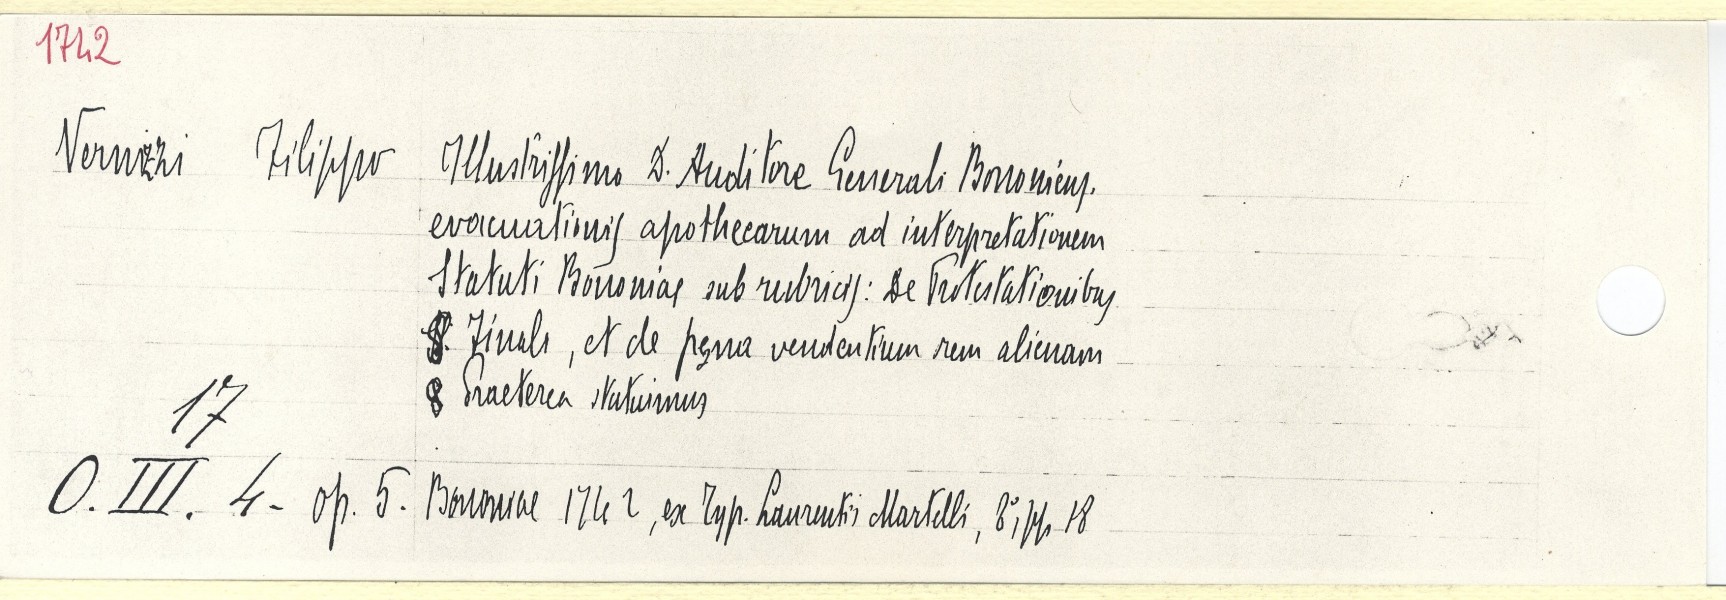 1742
Vernizzi Filippo Illustrissimo D. Auditore Generali Bononiens.
evacuationis apothecarum ad interpretationem
Statuti Bononiae sub rubricis: De Protestationibus
§. Finali, et de pęna vendentium rem alienam
§ Praeterea statuimus
17
O. III. 4- op. 5. Bononiae 1742, ex Typ. Laurentii Martelli, 8°, pp. 18